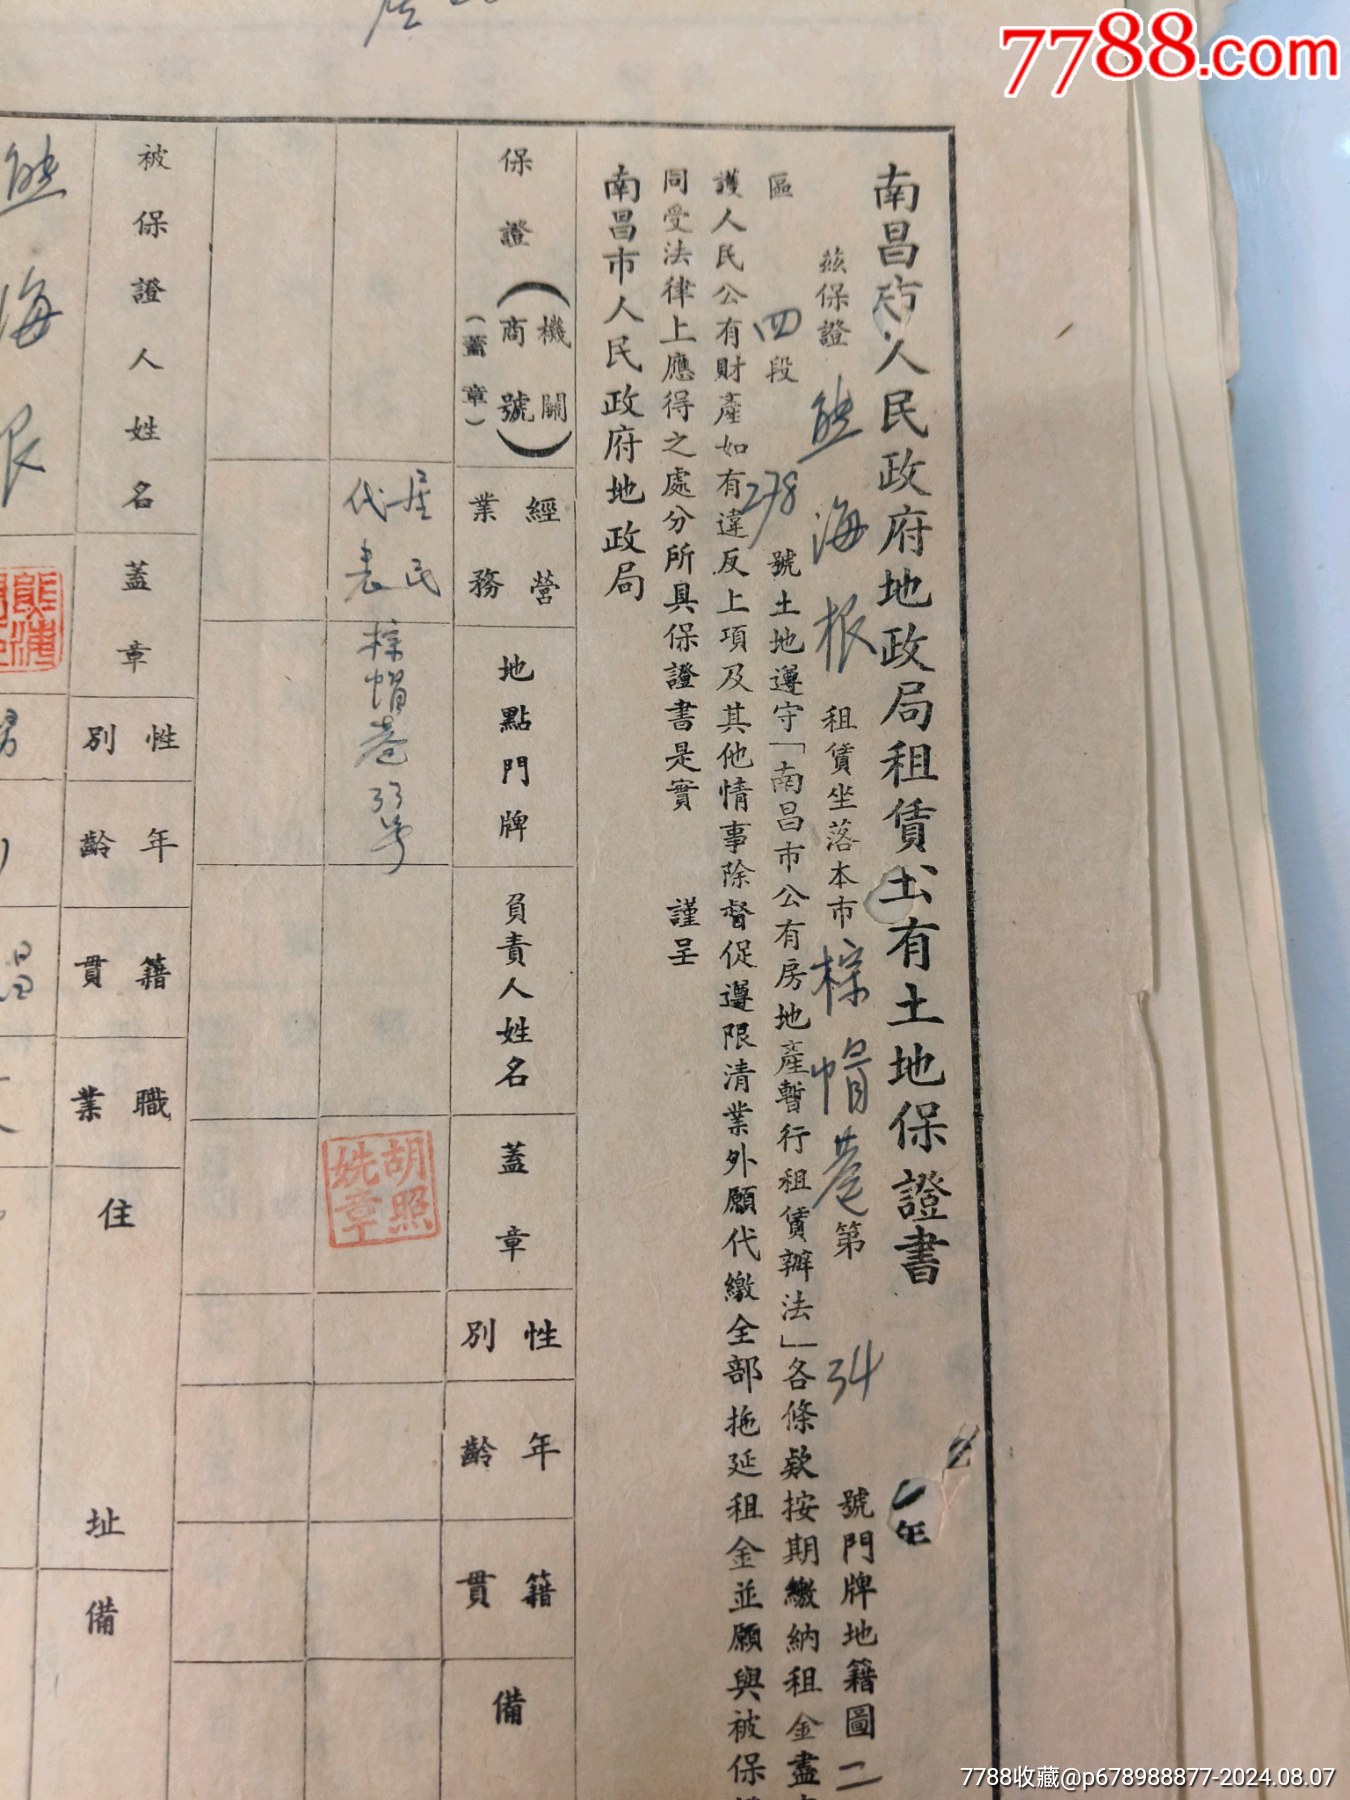 7788.com
南昌市人民政府地政局租賃公有土地保證書
茲保證 熊海根 租賃坐落本市 棕帽巷 第 34 號門牌地籍圖 二
區 四 段 278 號土地遵守「南昌市公有房地產暫行租賃辦法」各條款按期繳納租金盡
護人民公有財產如有違反上項及其他情事除督促遵限清業外願代繳全部拖延租金並願與被保
同受法律上應得之處分所具保證書是實 謹呈
南昌市人民政府地政局
年
保證(機關商號)(蓋章)
經營業務
地點門牌
負責人姓名
蓋章
性別
年齡
籍貫
備
居民代表
棕帽巷33号
胡照姚章
被保證人姓名
蓋章
性別
年齡
籍貫
職業
住址
備
熊海根
男
7788收藏@p678988877-2024.08.07